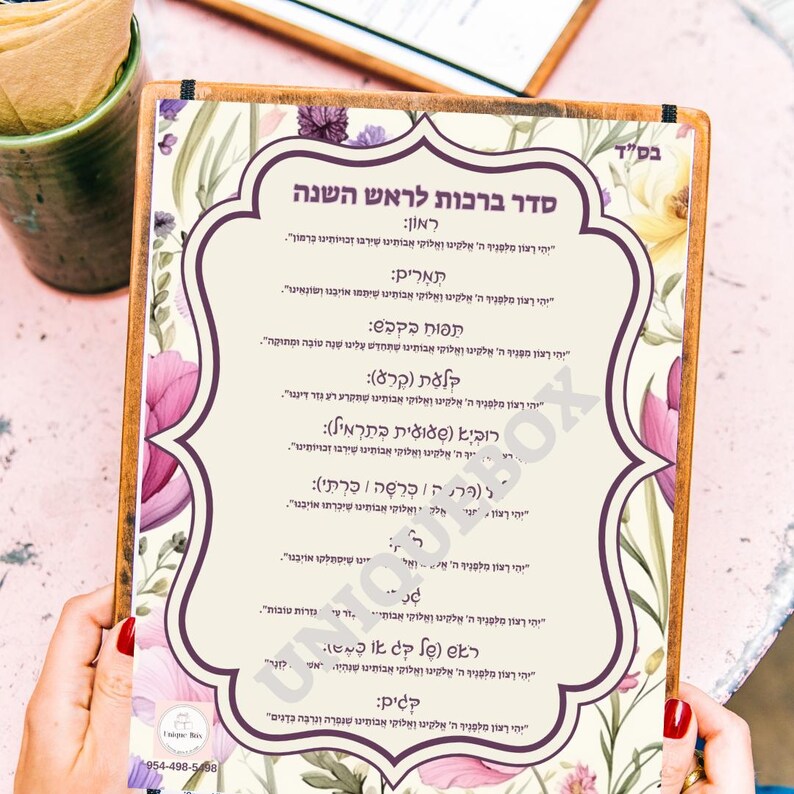 בס"ד
סדר ברכות לראש השנה
רִמּוֹן:
"יְהִי רָצוֹן מִלְּפָנֶיךָ ה' אֱלֹקֵינוּ וֵאלוֹקֵי אֲבוֹתֵינוּ שֶׁיִּרְבּוּ זְכוּיוֹתֵינוּ כְּרִמּוֹן".
תְּמָרִים:
"יְהִי רָצוֹן מִלְּפָנֶיךָ ה' אֱלֹקֵינוּ וֵאלוֹקֵי אֲבוֹתֵינוּ שֶׁיִּתַּמּוּ אוֹיְבֵנוּ וְשׂוֹנְאֵינוּ".
תַּפּוּחַ בִּדְבַשׁ:
"יְהִי רָצוֹן מִפָּנֶיךָ ה' אֱלֹקֵינוּ וֵאלוֹקֵי אֲבוֹתֵינוּ שֶׁתְּחַדֵּשׁ עָלֵינוּ שָׁנָה טוֹבָה וּמְתוּקָה".
דְּלַעַת (קֶרַע):
"יְהִי רָצוֹן מִלְּפָנֶיךָ ה' אֱלֹקֵינוּ וֵאלוֹקֵי אֲבוֹתֵינוּ שֶׁתִּקְרַע רֹעַ גְּזַר דִּינֵנוּ".
רוּבְּיָא (שְׁעוּעִית בְּתַרְמִיל):
רָצוֹן מִלְּפָנֶיךָ ה' אֱלֹקֵינוּ וֵאלוֹקֵי אֲבוֹתֵינוּ שֶׁיִּרְבּוּ זְכוּיוֹתֵינוּ".
כְּרֵשָׁה / כַּרְתִּי):
"יְהִי רָצוֹן ה' אֱלֹקֵינוּ וֵאלוֹקֵי אֲבוֹתֵינוּ שֶׁיִּכָּרְתוּ אוֹיְבֵנוּ".
"יְהִי רָצוֹן מִלְּפָנֶיךָ ה' אֱלֹקֵינוּ שֶׁיִּסְתַּלְּקוּ אוֹיְבֵנוּ".
"יְהִי רָצוֹן מִלְּפָנֶיךָ ה' אֱלֹקֵינוּ וֵאלוֹקֵי גְּזֵרוֹת טוֹבוֹת".
רֹאשׁ (שֶׁל דָּג אוֹ כֶּבֶשׂ):
"יְהִי רָצוֹן מִלְּפָנֶיךָ ה' אֱלֹקֵינוּ וֵאלוֹקֵי אֲבוֹתֵינוּ לְזָנָב"
דָּגִים:
"יְהִי רָצוֹן מִלְּפָנֶיךָ ה' אֱלֹקֵינוּ וֵאלוֹקֵי אֲבוֹתֵינוּ שֶׁנִּפְרֶה וְנִרְבֶּה כַּדָּגִים"
UNIQUEBOX
Unique Box
954-498-5498